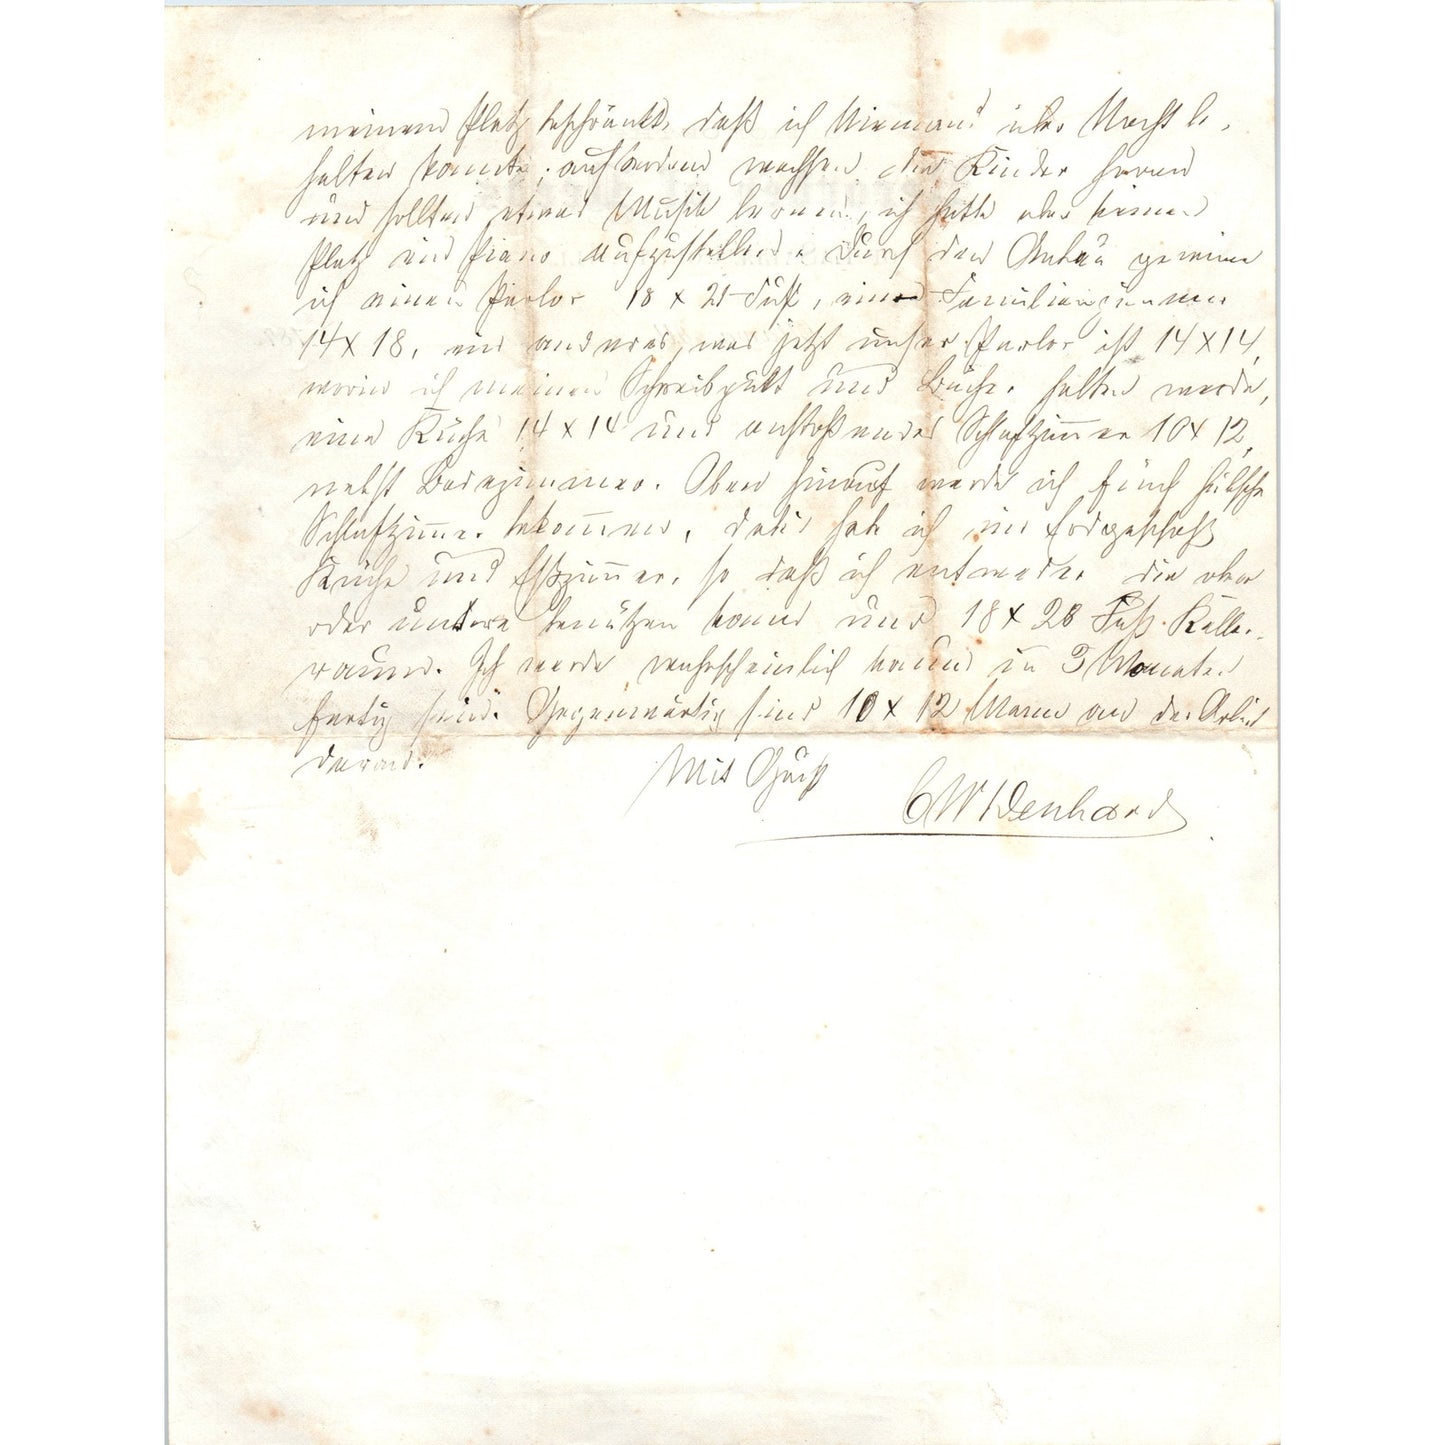 meinem Platz beschränkt, daß ich Niemand über Nacht be-
halten konnte; außerdem wachsen die Kinder heran
und sollten etwas Musik lernen, ich hatte aber keinen
Platz ein Piano aufzustellen. Durch den Anbau gewinne
ich einen Parlor 18 x 21 Fuß, einen Familienzimmer
14 x 18, ein anderes, was jetzt unser Parlor ist 14 x 14,
worin ich meinen Schreibpult und Bücher halten werde,
eine Küche 14 x 14 und anstoßendes Schlafzimmer 10 x 12,
nebst Badezimmer. Oben hinauf werde ich fünf hübsche
Schlafzimmer bekommen, dabei habe ich im Erdgeschoß
Küche und Eßzimmer, so daß ich entweder die obere
oder untere benützen kann und 18 x 28 Fuß Keller-
raum. Ich werde wahrscheinlich kaum in 3 Monaten
fertig sein. Gegenwärtig sind 10 x 12 Mann an der Arbeit
daran.
Mit Gruß
CWIDenhard